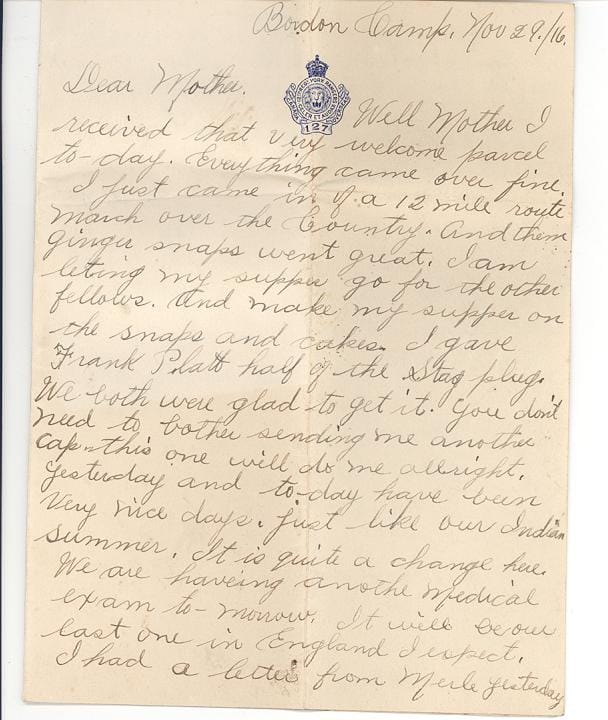 Bordon Camp, Nov 29./16.
Dear Mother.
127
Well Mother I
received that very welcome parcel
to-day. Everything came over fine.
I just came in of a 12 mile route
march over the Country. And them
ginger snaps went great. I am
leting my supper go for the other
fellows. And make my supper on
the snaps and cakes. I gave
Frank Platt half of the Stag plug.
We both were glad to get it. You don't
need to bother sending me another
cap. this one will do me allright.
Yesterday and to-day have been
very nice days. just like our Indian
summer. It is quite a change here.
We are haveing anothe Medical
exam to-morrow. It will be our
last one in England I expect.
I had a letter from Merle yesterday